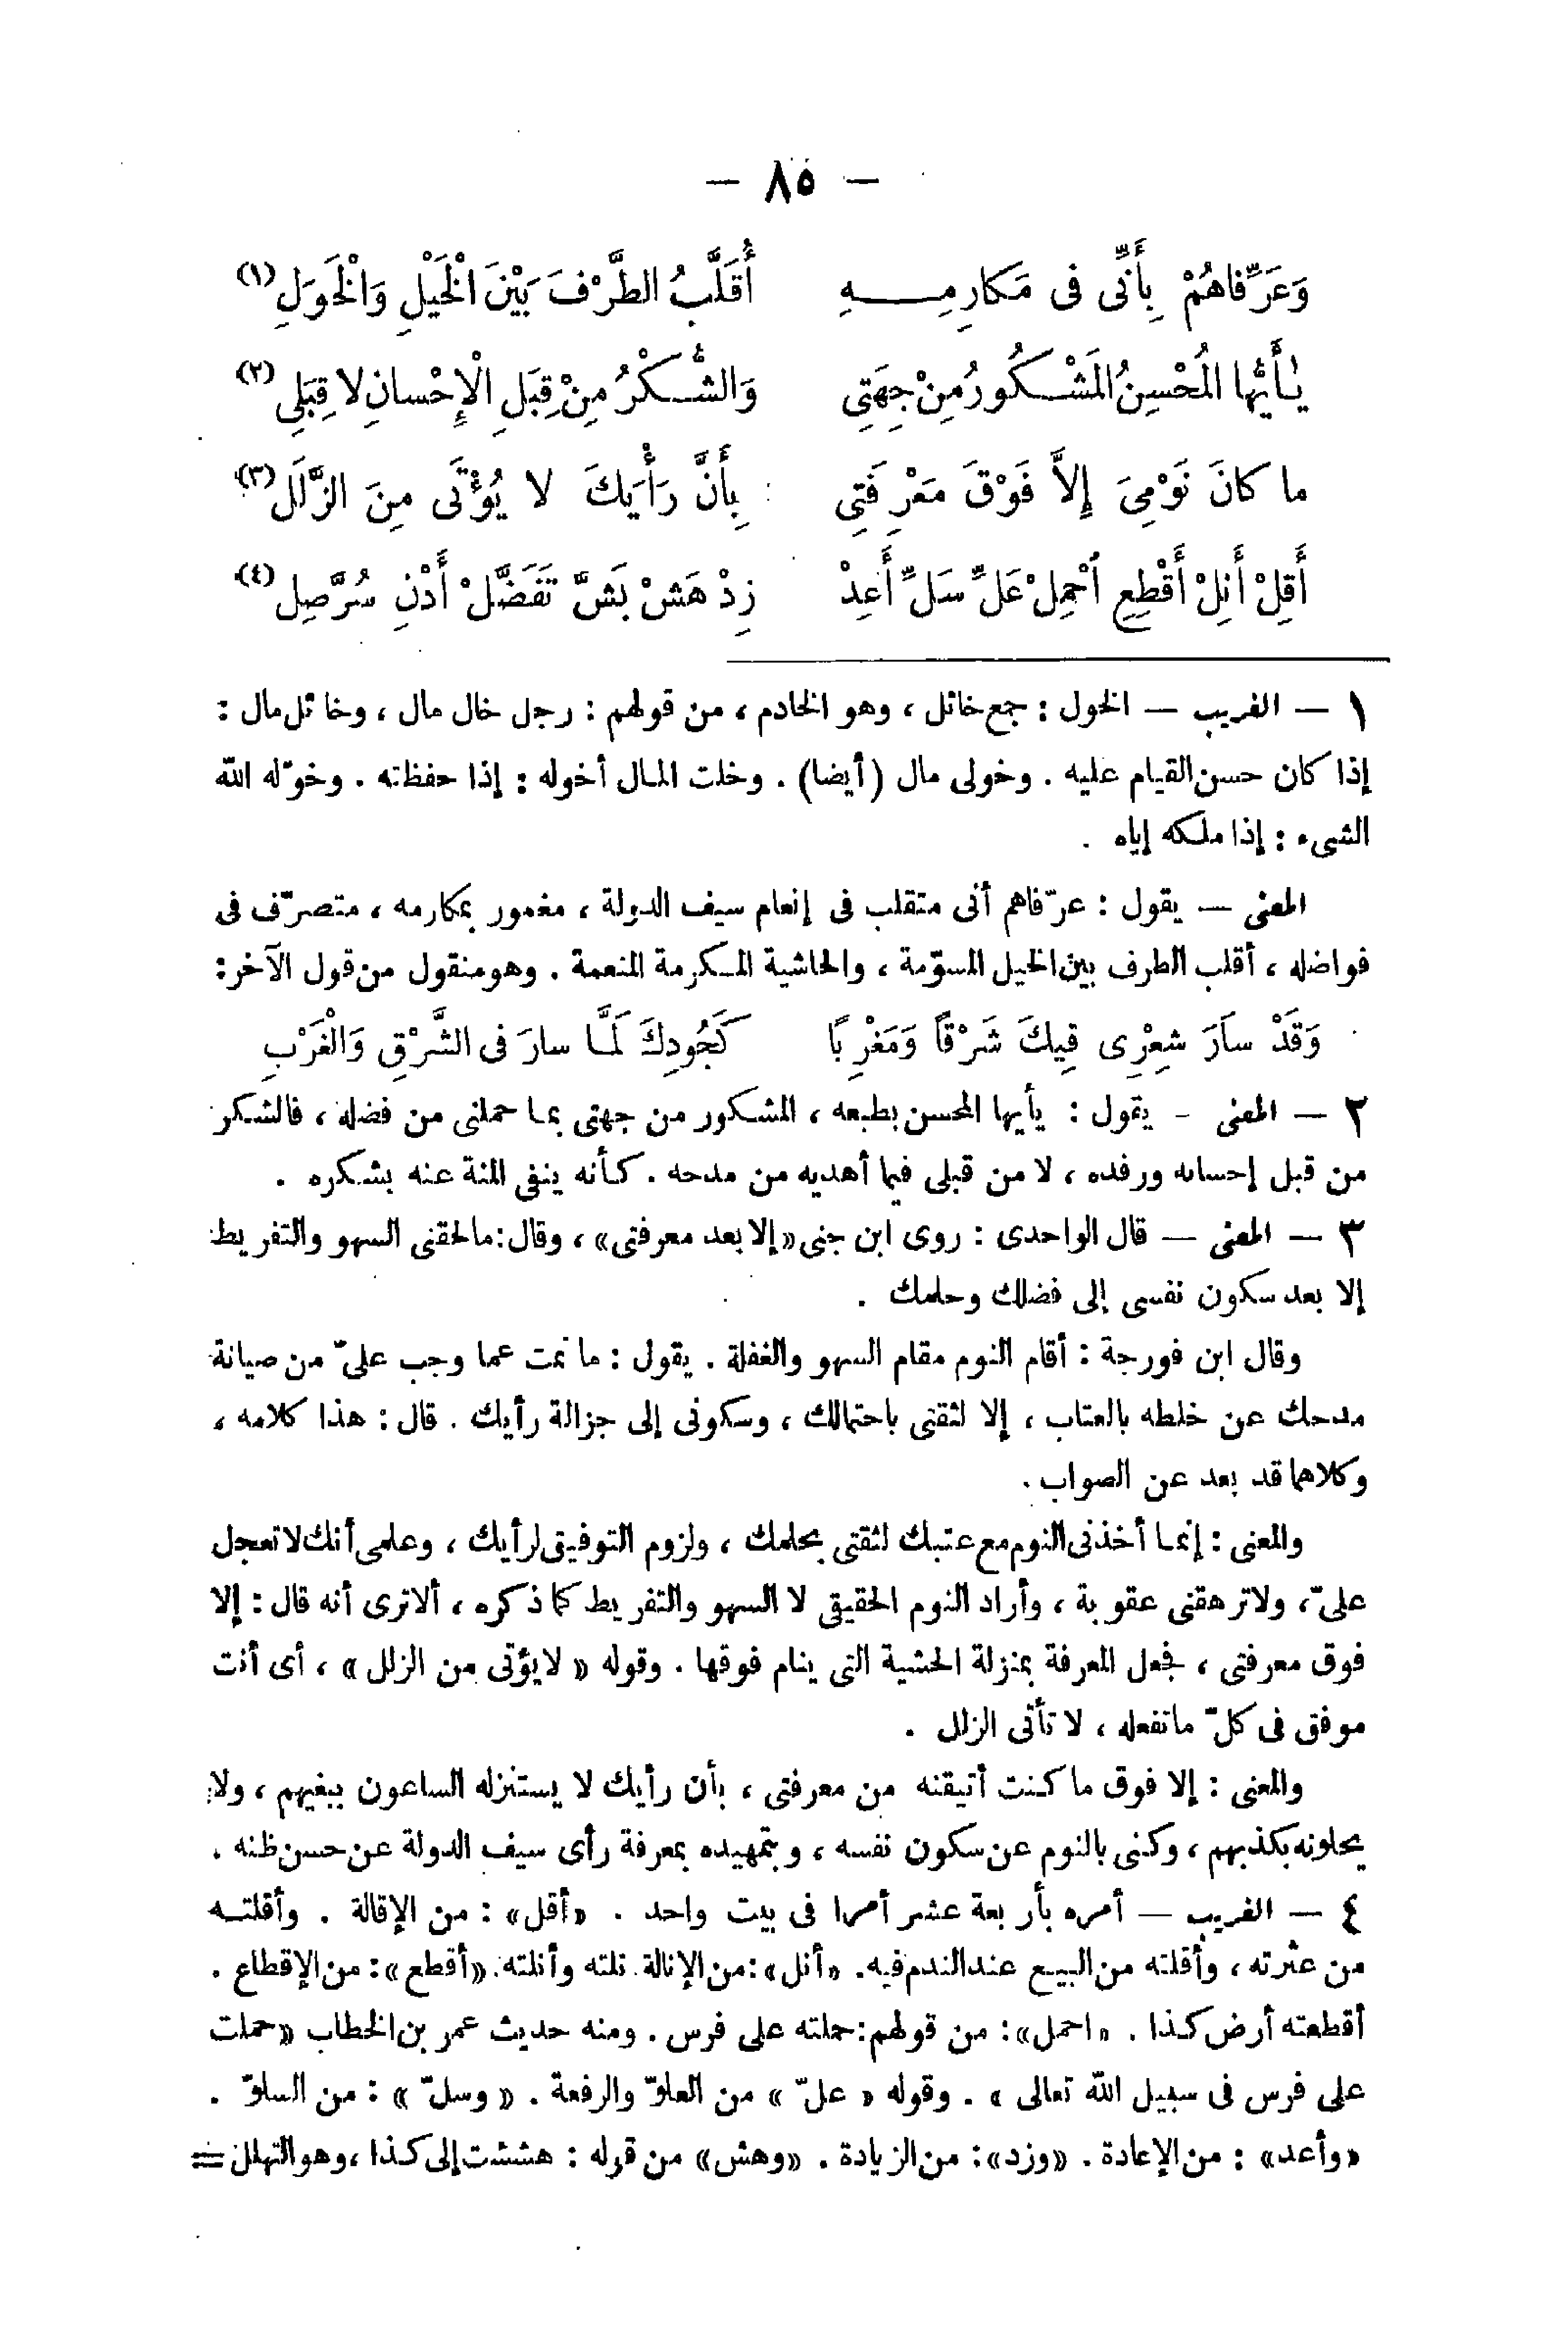 — ٨٥ —
وَعَرِّفاهُمْ بِأَنِّى فى مَكارِمِـــهِ أُقَلِّبُ الطَّرْفَ بَيْنَ الْخَيْلِ وَالْخَوَلِ (١)
يٰأَيُّها الْمُحْسِنُ الْمَشْكُورُ مِنْ جِهَتِى وَالشُّكْرُ مِنْ قِبَلِ الْإِحْسانِ لا قِبَلِى (٢)
ما كانَ نَوْمِىَ إِلاَّ فَوْقَ مَعْرِفَتِى بِأَنَّ رَأْيَكَ لا يُؤْتَى مِنَ الزَّلَلِ (٣)
أَقِلْ أَنِلْ أَقْطِعِ أحْمِلْ عَلِّ سَلِّ أَعِدْ زِدْ هَشْ بَشَّ تَفَضَّلْ أَدْنِ سُرَّ صِلِ (٤)
١ — الغريب — الخول : جمع خائل ، وهو الخادم ، من قولهم : رجل خال مال ، وخائل مال :
إذا كان حسن القيام عليه . وخولى مال (أيضا) . وخلت المال أخوله : إذا حفظته . وخوّله الله
الشىء : إذا ملكه إياه .
المعنى — يقول : عرّفاهم أنى متقلب فى إنعام سيف الدولة ، مغمور بمكارمه ، متصرّف فى
فواضله ، أقلب الطرف بين الخيل المسوّمة ، والحاشية المكرمة المنعمة . وهو منقول من قول الآخر :
وَقَدْ سارَ شِعْرِى فِيكَ شَرْقاً وَمَغْرِبًا كَجُودِكَ لَمَّا سارَ فى الشَّرْقِ وَالْغَرْبِ
٢ — المعنى - يقول : يأيها المحسن بطبعه ، المشكور من جهتى بما حملنى من فضله ، فالشكر
من قبل إحسانه ورفده ، لا من قبلى فيما أهديه من مدحه . كأنه ينفى المنة عنه بشكره .
٣ — المعنى — قال الواحدى : روى ابن جنى «إلا بعد معرفتى» ، وقال : ما لحقنى السهو والتفريط
إلا بعد سكون نفسى إلى فضلك وحلمك .
وقال ابن فورجة : أقام النوم مقام السهو والغفلة . يقول : ما نمت عما وجب علىّ من صيانة
مدحك عن خلطه بالعتاب ، إلا لثقتى باحتمالك ، وسكونى إلى جزالة رأيك . قال : هذا كلامه ،
وكلاهما قد بعد عن الصواب .
والمعنى : إنما أخذنى النوم مع عتبك لثقتى بحلمك ، ولزوم التوفيق لرأيك ، وعلمى أنك لا تعجل
علىّ ، ولا ترهقنى عقوبة ، وأراد النوم الحقيقى لا السهو والتفريط كما ذكره ، ألا ترى أنه قال : إلا
فوق معرفتى ، فجعل المعرفة بمنزلة الحشية التى ينام فوقها . وقوله « لا يؤتى من الزلل » ، أى أنت
موفق فى كلّ ما تفعله ، لا تأتى الزلل .
والمعنى : إلا فوق ما كنت أتيقنه من معرفتى ، بأن رأيك لا يستنزله الساعون ببغيهم ، ولا
يحلونه بكذبهم ، وكنى بالنوم عن سكون نفسه ، وبتمهيده بمعرفة رأى سيف الدولة عن حسن ظنه .
٤ — الغريب — أمره بأربعة عشر أمرا فى بيت واحد . «أقل» : من الإقالة . وأقلتـه
من عثرته ، وأقلته من البيع عند الندم فيه . «أنل» : من الإنالة . نلته وأنلته . «أقطع» : من الإقطاع .
أقطعته أرض كذا . «احمل» : من قولهم : حملته على فرس . ومنه حديث عمر بن الخطاب «حملت
على فرس فى سبيل الله تعالى » . وقوله « علّ » من العلوّ والرفعة . « وسلّ » : من السلوّ .
«وأعد» : من الإعادة . «وزد» : من الزيادة . «وهش» من قوله : هششت إلى كذا ، وهو التهلل =